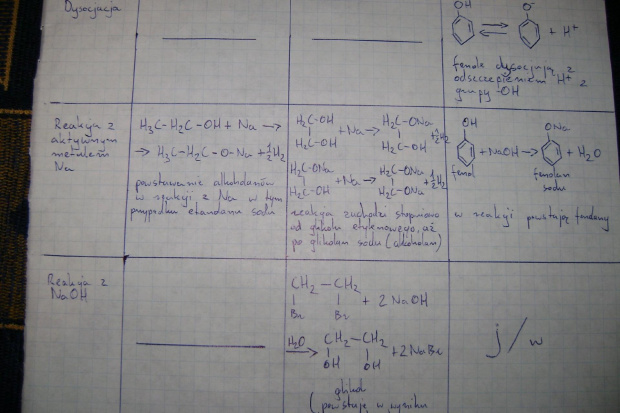 Dysocjacja
OH
O⁻
⇌ + H⁺
fenole dysocjują z
odszczepieniem H⁺ z
grupy -OH
Reakcja z
aktywnym
metalem
Na
H₃C-H₂C-OH + Na →
→ H₃C-H₂C-O-Na + ½H₂
powstawanie alkoholanów
w reakcji z Na w tym
przypadku etanolanu sodu
H₂C-OH
H₂C-OH
+ Na →
H₂C-ONa
H₂C-OH
+ ½H₂
H₂C-ONa
H₂C-OH
+ Na →
H₂C-ONa
H₂C-ONa
+ ½H₂
reakcja zachodzi stopniowo
od glikolu etylenowego, aż
po glikolan sodu (alkoholan)
OH
+ NaOH →
ONa
+ H₂O
fenol
fenolan
sodu
w reakcji powstają fenolany
Reakcja z
NaOH
CH₂ - CH₂
Br Br
+ 2 NaOH
H₂O →
CH₂ - CH₂
OH OH
+ 2NaBr
glikol
(powstaje w wyniku
j/w